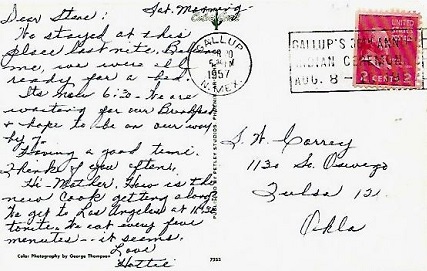 Sat. Morning -
Dear Steve:
We stayed at this
place last nite. Believe
me, we were all
ready for a bed.
Its now 6:30 - We are
waiting for our Breakfast
& hope to be on our way
by 7.
Having a good time.
Thanks of you often.
Hi - Mother. How is the
new Cook getting along
We get to Los Angeles at 11:30
tonite. We eat every five
menutes -- it seems.
Love
Hattie
Color Photography by George Thompson
7233
PETLEY STUDIOS
GALLUP
1957
N. MEX.
GALLUP'S ANN
INDIAN
AUG. 8 -
UNITED
2 CENTS 2
S. W. Correy
1130 So. Oswego
Tulsa 12
Okla